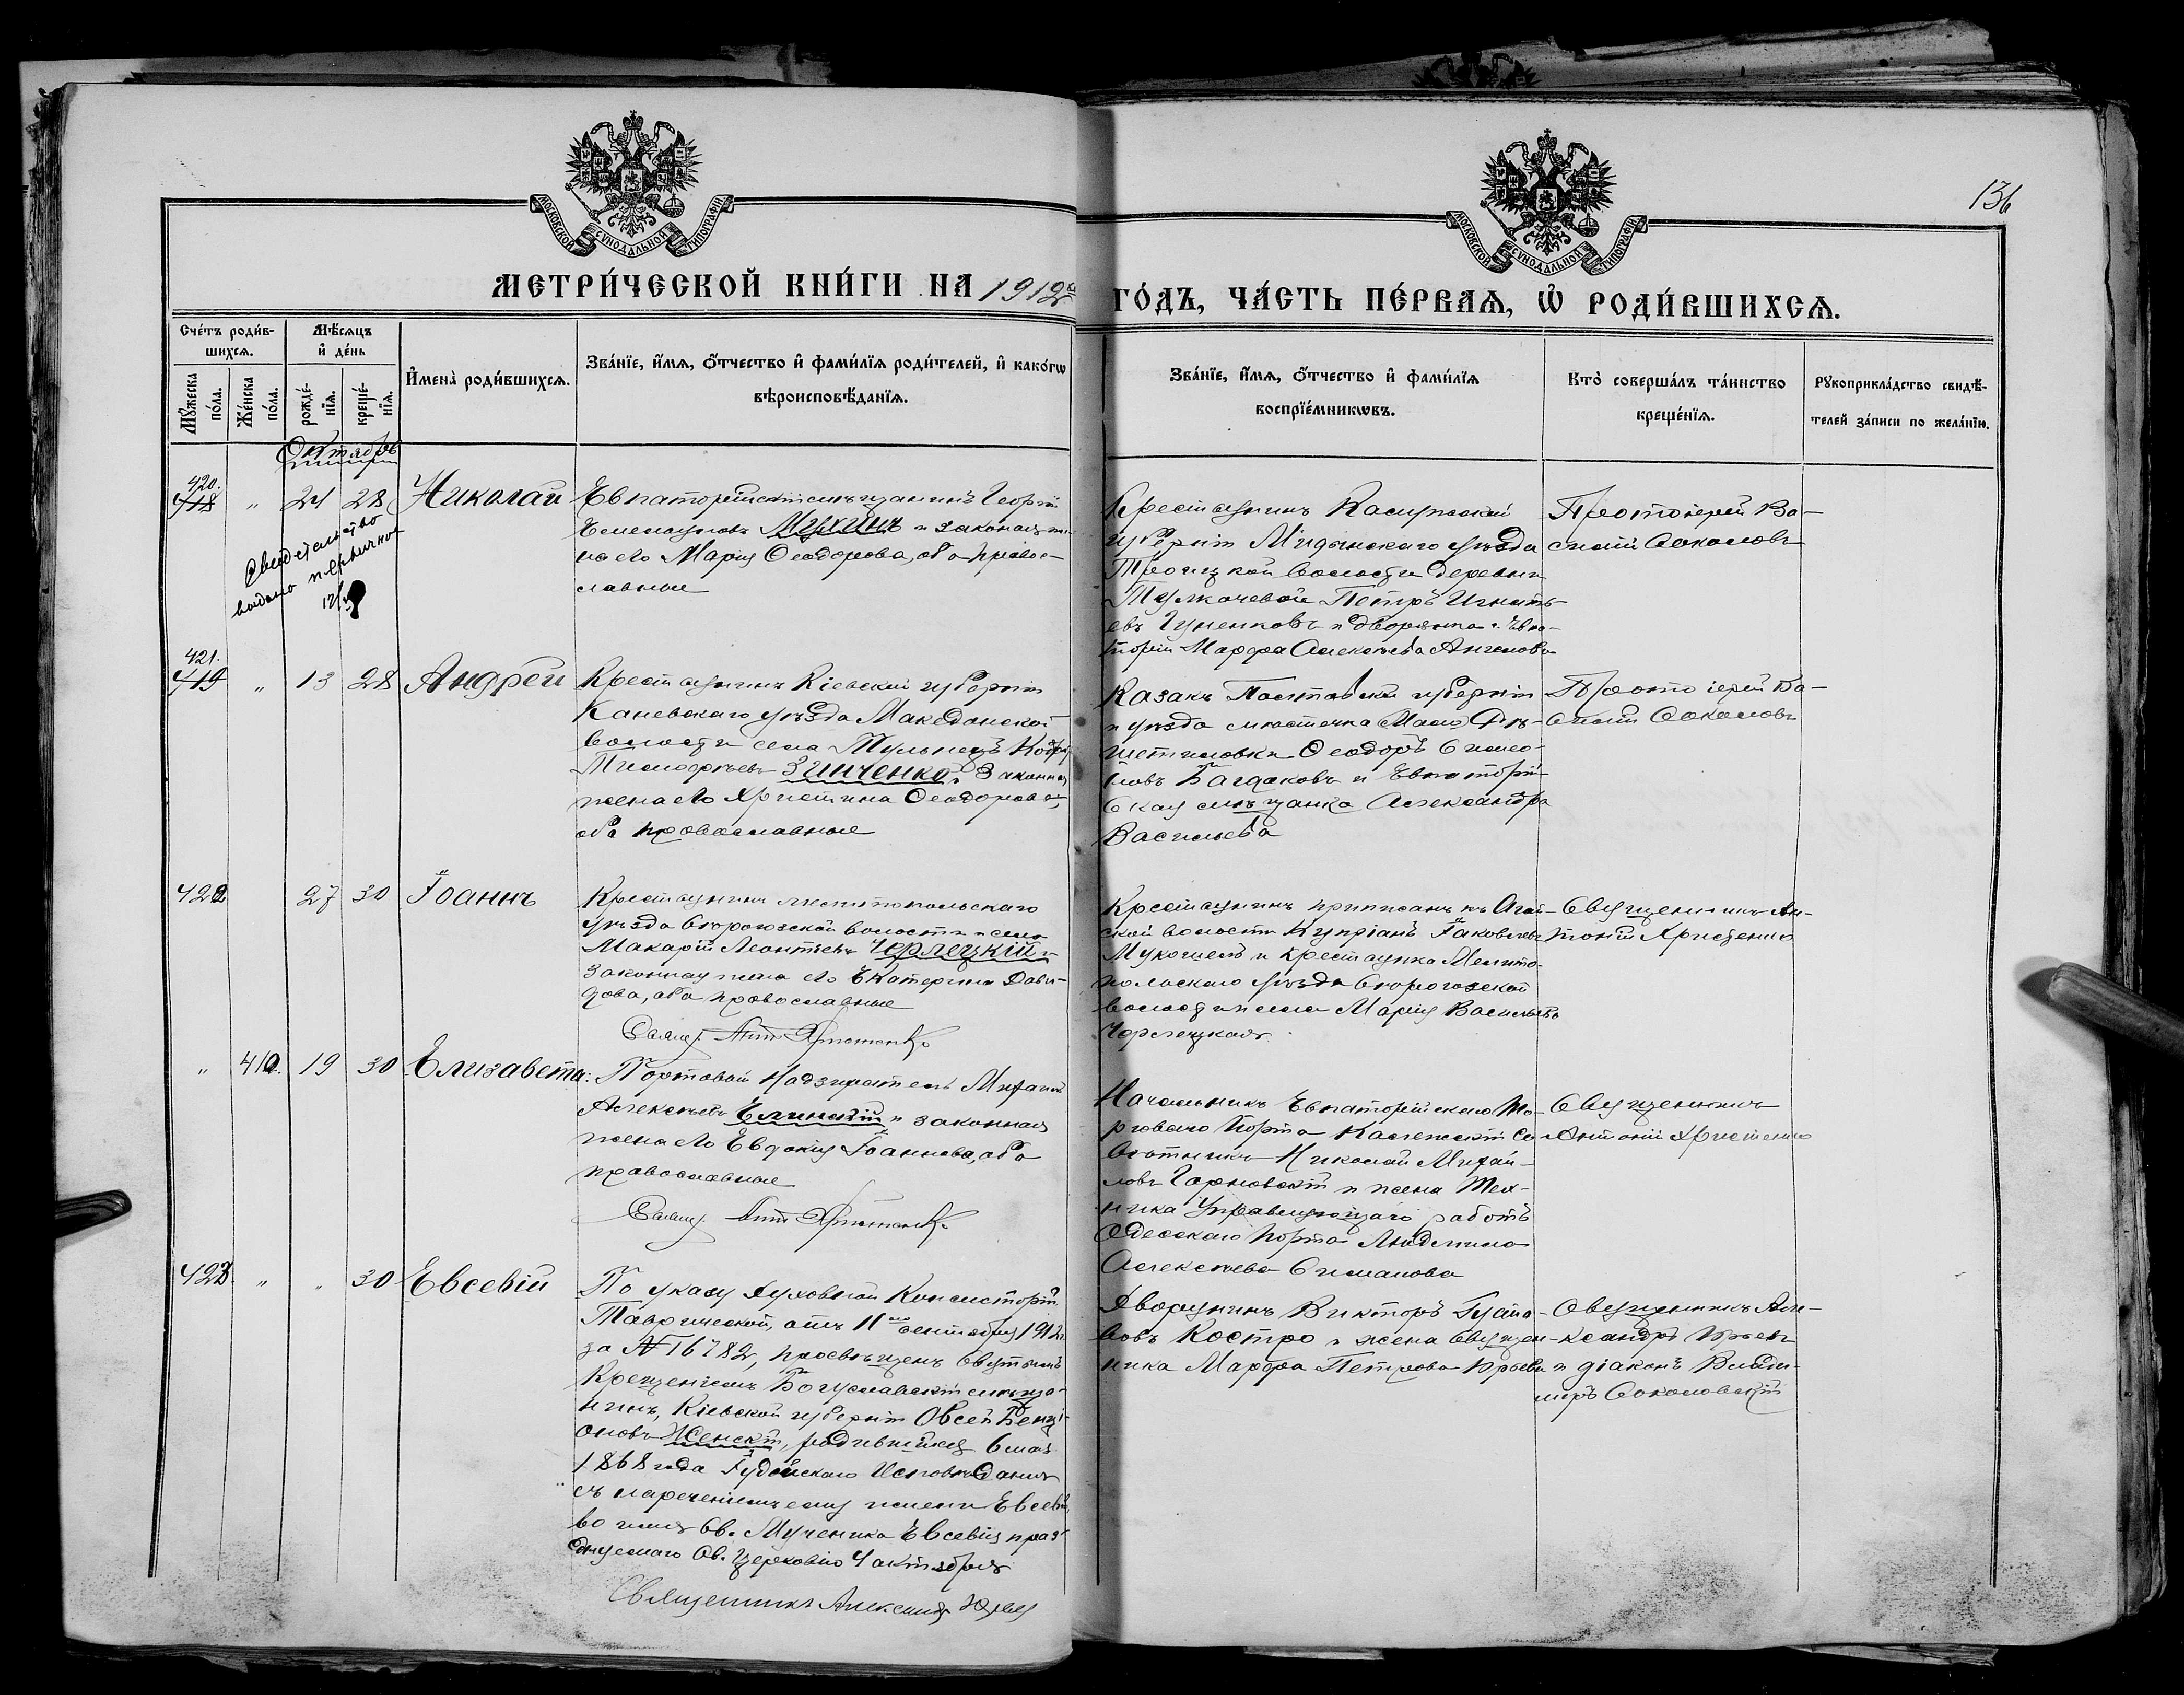 МОСКОВСКОЙ СѴНОДАЛЬНОЙ ТИПОГРАФІИ
МОСКОВСКОЙ СѴНОДАЛЬНОЙ ТИПОГРАФІИ
136
МЕТРИ́ЧЕСКОЙ КНИ́ГИ НА 1912
ГО́ДЪ, ЧА́СТЬ ПЕ́РВАѦ, Ѡ҆ РОДИ́ВШИХСѦ.
Сче́тъ роди́в-
шихсѧ.
Мꙋ́жеска по́ла.
Же́нска по́ла.
Мѣ́сѧцъ
и҆ де́нь
рожде́-
нїѧ.
креще́-
нїѧ.
И҆мена̀ роди́вшихсѧ.
Зва́нїе, и҆́мѧ, о҆́тчество и҆ фами́лїѧ роди́телей, и҆ како́гѡ
вѣроисповѣ́данїѧ.
Зва́нїе, и҆́мѧ, о҆́тчество и҆ фами́лїѧ
воспрїе́мникѡвъ.
Кто̀ соверша́лъ та́инство
креще́нїѧ.
Рꙋкоприкла́дство свидѣ́-
телей за́писи по жела́нїю.
Октябрь
420.
418 " 24 28 Николай
Евпаторійскій мѣщанинъ Георгій
Емельяновъ Мухинъ и законная же-
на его Марія Ѳеодорова, оба правос-
лавные
Свидѣтельство
выдано первично
Крестьянинъ Калужской
губерніи Мядынскаго уѣзда
Троицкой волости деревни
Тулкачевой Петръ Игнать-
евъ Гуненковъ и дворянка г. Евпа-
торіи Марфа Алексѣева Ангелова
Протоіерей Ва-
силій Соколовъ
421.
419 " 13 28 Андрей
Крестьянинъ Кіевской губерніи
Каневскаго уѣзда Македонской
волости села Тулинецъ
Тимофѣевъ Зинченко и законная
жена его Христина Ѳеодорова,
оба православные
Казакъ Полтавской губерніи
и уѣзда мѣстечка Мало Пе-
щетиловки Ѳеодоръ Симео-
новъ Багдаковъ и Евпаторій-
ская мѣщанка Александра
Васильева
Протоіерей Ва-
силій Соколовъ
422 27 30 Іоаннъ
Крестьянинъ мелитопольскаго
уѣзда Второгозской волости и села
Макарій Леонтіевъ Черлецкій и
законная жена его Екатерина Дави-
дова, оба православные
Свящ. Ант. Христенко
Крестьянинъ приписанъ къ Агай-
ской волости Купріанъ Іаковлевъ
Мукомелъ и крестьянка Мелито-
польскаго уѣзда Второгозской
волости и села Марія Васильева
Черлецкая
Священникъ Ан-
тоній Христенко
" 410. 19 30 Елизавета:
Портовой Надзиратель Михаилъ
Алексѣевъ Елинскій и законная
жена его Евдокія Іоаннова, оба
православные
Свящ. Ант. Христенко
Начальникъ Евпаторійскаго То-
рговаго Порта Коллежскій Со-
вѣтникъ Николай Михай-
ловъ Гарновскій и жена Тех-
ника Управляющаго работъ
Одесскаго порта Людмила
Алексѣева Симанова
Священникъ
Антоній Христенко
423 " " 30 Евсевій
По указу Духовной Консисторіи
Таврической, отъ 11го сентября 1912г.
за № 16782, просвѣщенъ Святымъ
Крещеніемъ Богуславскій мѣща-
нинъ, Кіевской губерніи Овсей Бенці-
оновъ Женскій, родившійся 6 мая
1868 года Іудейскаго Исповѣданія
съ нареченіемъ ему имени Евсевій,
во имя Св. Мученика Евсевія праз-
днуемаго Св. Церковію 4 октября
Священникъ Александръ Юрьевъ
Дворянинъ Викторъ Густа-
вовъ Костро и жена Священ-
ника Марфа Петрова Юрьева
Священникъ Але-
ксандръ Юрьевъ
и діаконъ Влади-
миръ Соколовскій